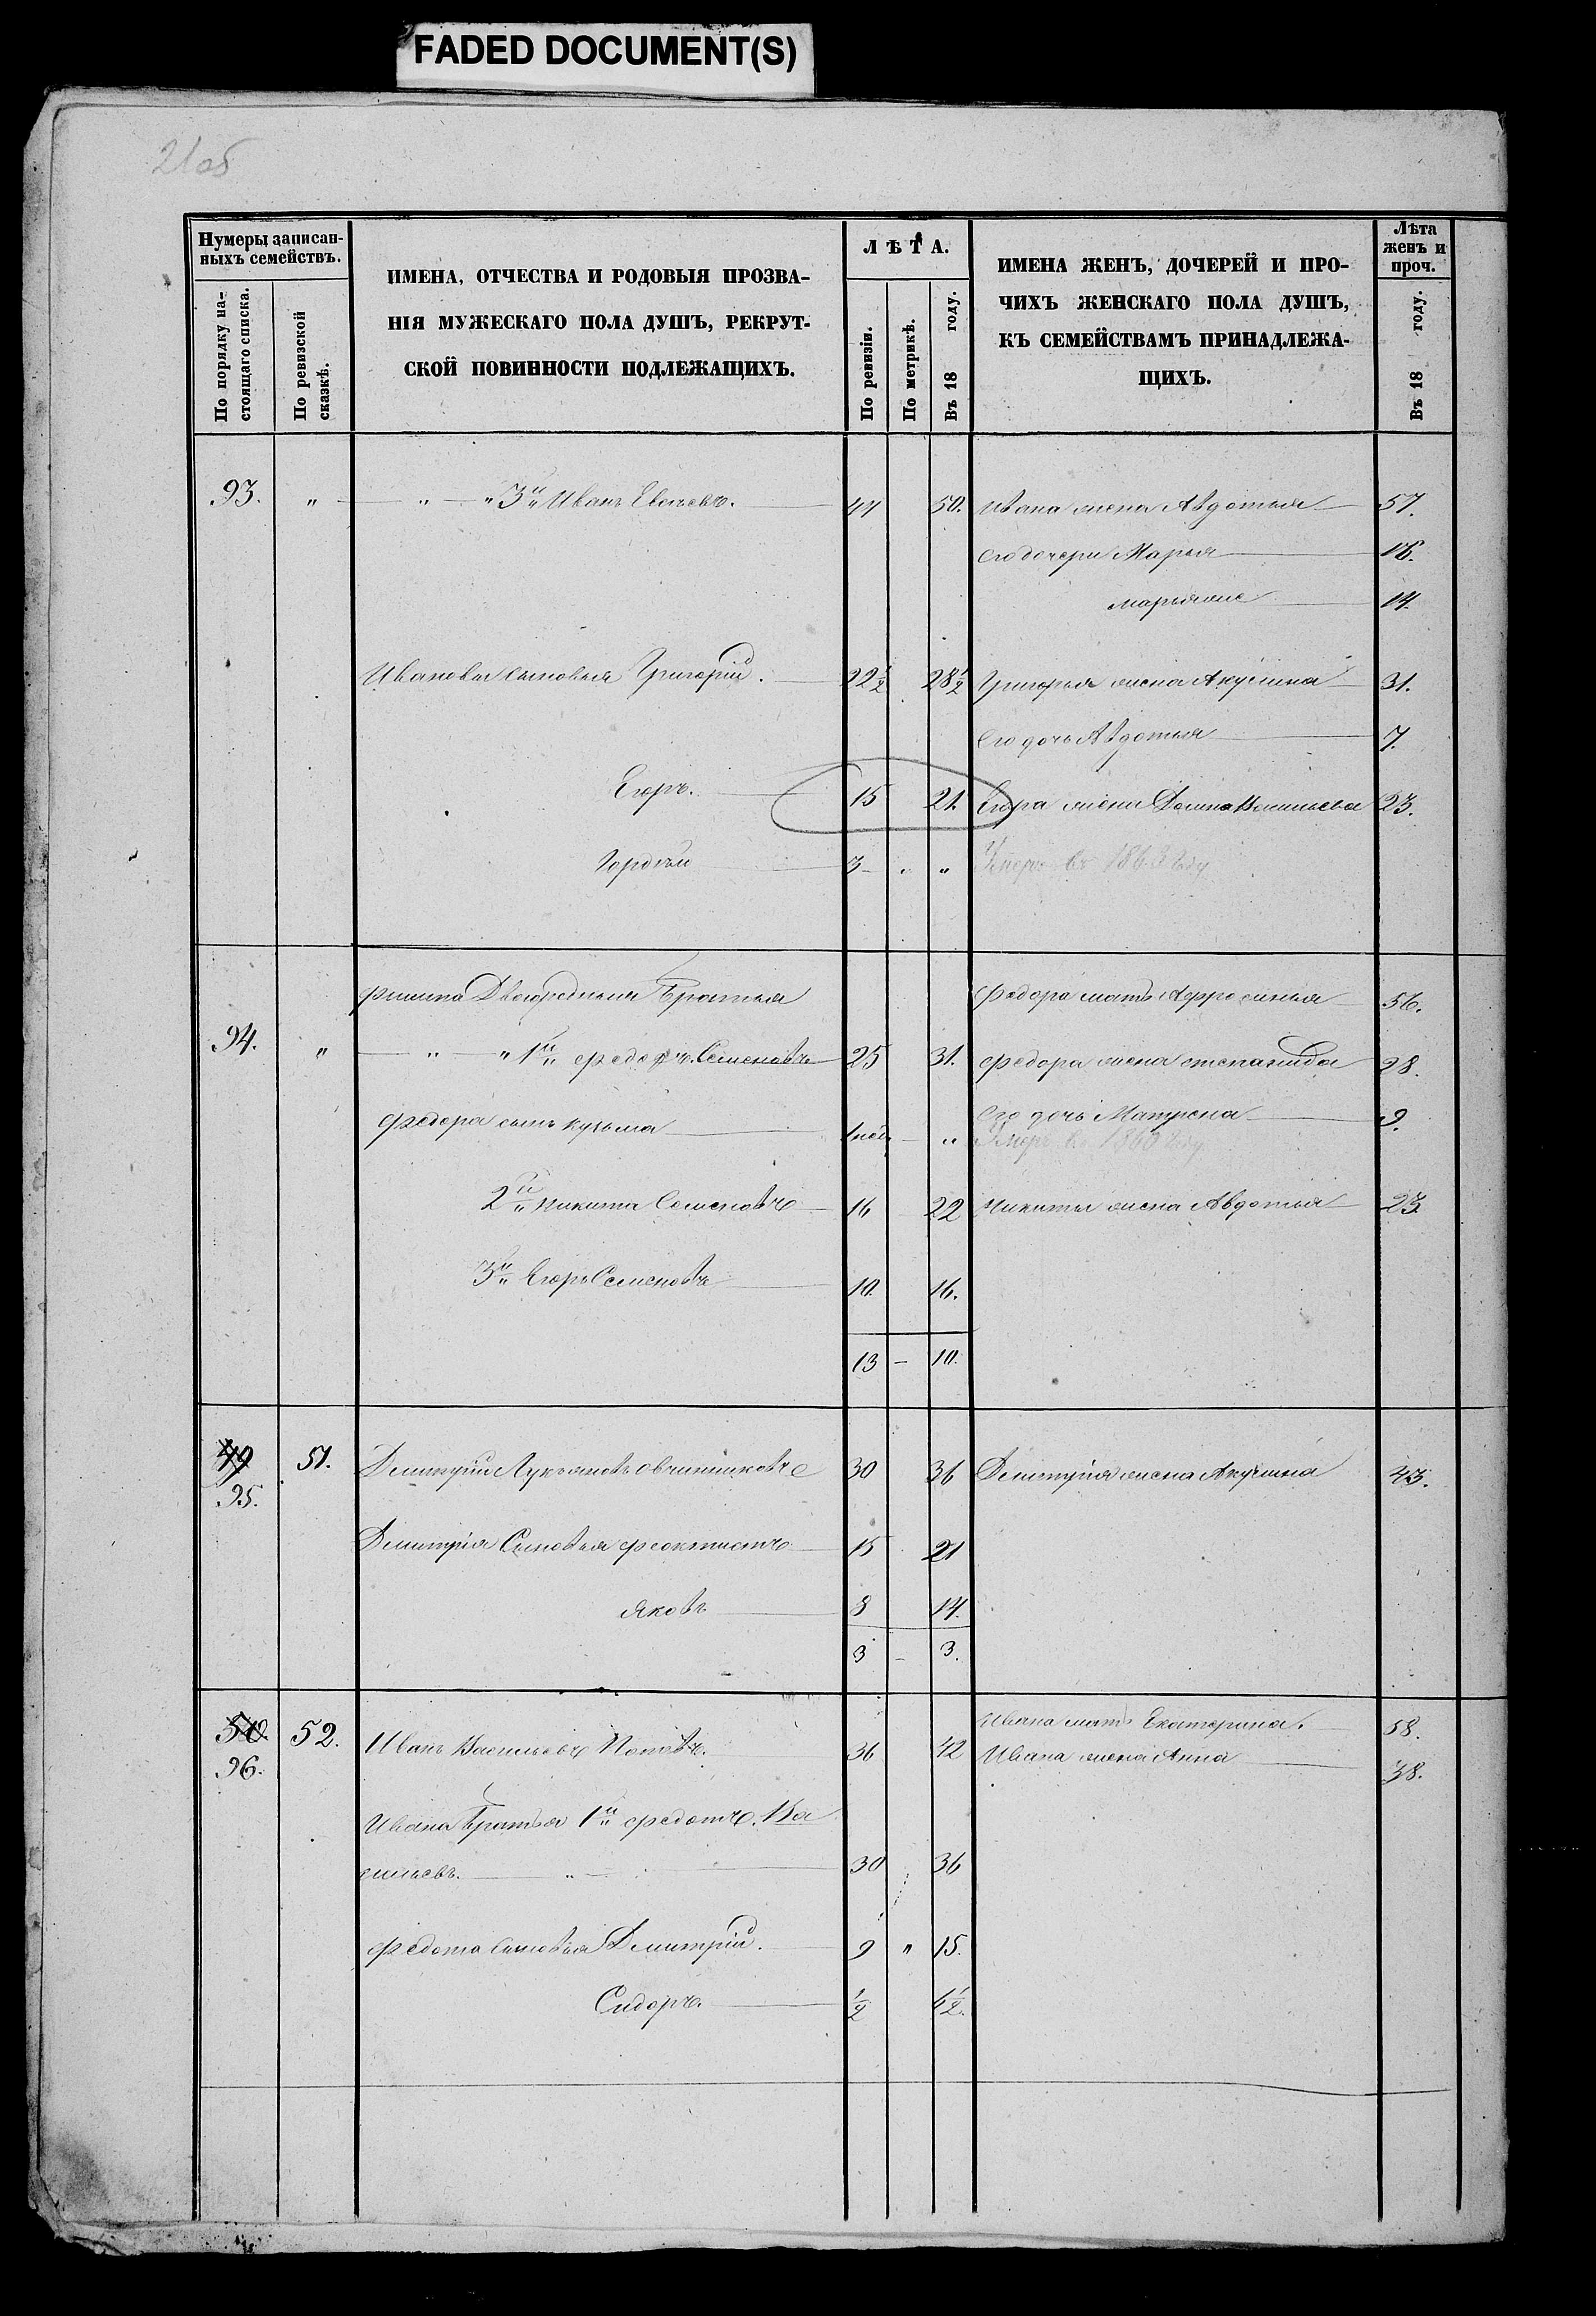 FADED DOCUMENT(S)
21об
Нумеры записан-
ныхъ семействъ.
По порядку на-
стоящаго списка.
По ревизской
сказкѣ.
ИМЕНА, ОТЧЕСТВА И РОДОВЫЯ ПРОЗВА-
НІЯ МУЖЕСКАГО ПОЛА ДУШЪ, РЕКРУТ-
СКОЙ ПОВИННОСТИ ПОДЛЕЖАЩИХЪ.
ЛѢТА.
По ревизіи.
По метрикѣ.
Въ 18 году.
ИМЕНА ЖЕНЪ, ДОЧЕРЕЙ И ПРО-
ЧИХЪ ЖЕНСКАГО ПОЛА ДУШЪ,
КЪ СЕМЕЙСТВАМЪ ПРИНАДЛЕЖА-
ЩИХЪ.
Лѣта
женъ и
проч.
Въ 18 году.
93. " " " 3й Иванъ 44 50. Ивана жена Авдотья 57.
его дочери Марья 16.
14.
Ивановы сыновья Григорій. 22½ 28½ Григорья жена Акулина 31.
Его дочь Авдотья 7.
Егоръ. 15 21. Егора жена Домна Васильева 23.
Гордѣй 3 " " Умеръ въ 1863 году
Двоюродныя Братья Федора мать Афросинья 56.
94. " " " 1й Федоръ Семеновъ 25 31. Федора жена Степанида 28.
Его дочь Матрена 9.
Федора сынъ Кузьма 1 нед " Умеръ въ 1860 году
2й Никита Семеновъ 16 22 Никиты жена Авдотья 23
3й Егоръ Семеновъ 10. 16.
13 — 10.
49 51. Дмитрій Лукьяновъ Овчинниковъ 30 36 Дмитрія жена Акулина 43.
95.
Дмитрія Сыновья Феоктистъ 15 21
Яковъ 8 14.
3 — 3.
Ивана мать Екатерина. 58.
50. 52. Иванъ Васильевъ Поповъ. 36 42 Ивана жена Анна 38.
96.
Ивана Братья 1й Федотъ. Ва
сильевъ. " 30 36
Федота Сыновья Дмитрій. 9 " 15.
Сидоръ. ½ 6½.